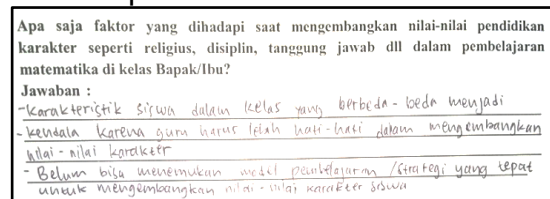 Apa saja faktor yang dihadapi saat mengembangkan nilai-nilai pendidikan
karakter seperti religius, disiplin, tanggung jawab dll dalam pembelajaran
matematika di kelas Bapak/Ibu?
Jawaban :
- Karakteristik siswa dalam kelas yang berbeda - beda menjadi
- kendala karena guru harus lebih hati-hati dalam mengembangkan
nilai - nilai karakter
- Belum bisa menemukan model pembelajaran /strategi yang tepat
untuk mengembangkan nilai - nilai karakter siswa